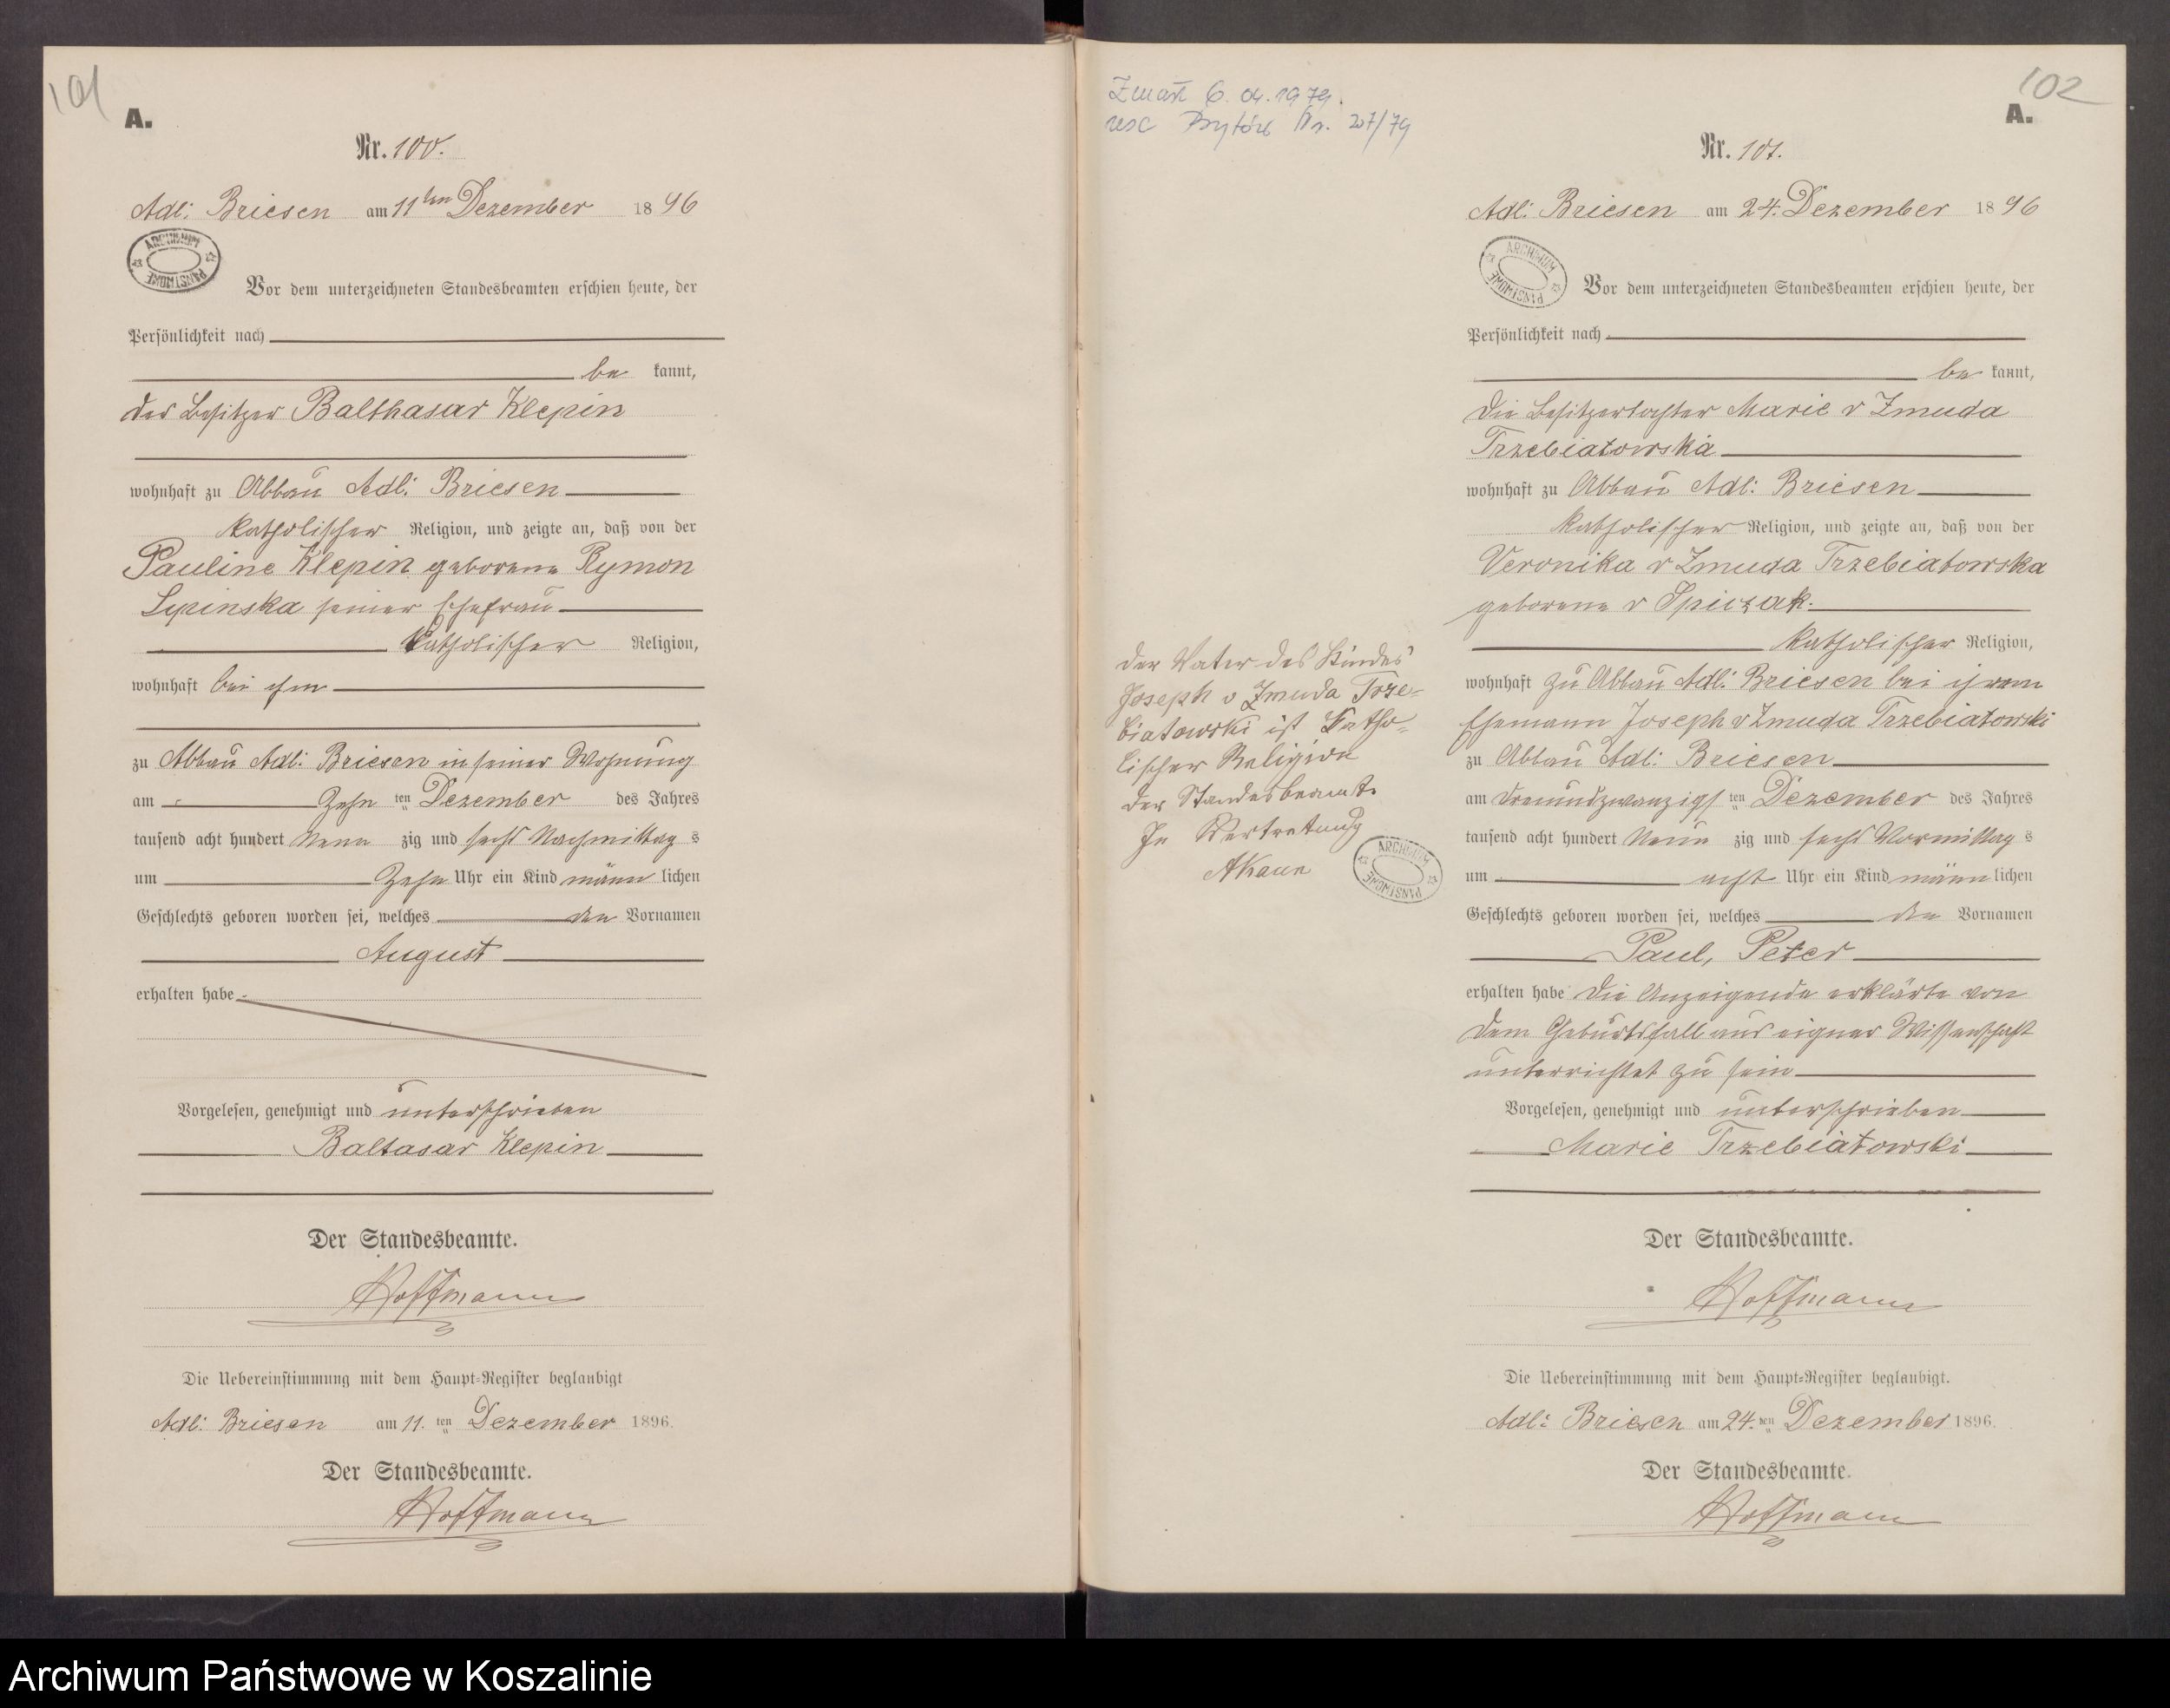 101
A.
Nr. 100.
Adl: Briesen am 11ten Dezember 1896
ARCHIWUM PAŃSTWOWE
Vor dem unterzeichneten Standesbeamten erschien heute, der
Persönlichkeit nach
be kannt,
der Besitzer Balthasar Klepin
wohnhaft zu Abbau Adl: Briesen
katholischer Religion, und zeigte an, daß von der
Pauline Klepin geborene Rymon
Lipinska seiner Ehefrau
katholischer Religion,
wohnhaft bei ihm
zu Abbau Adl: Briesen in seiner Wohnung
am zehn ten Dezember des Jahres
tausend acht hundert neun zig und sechs Nachmittag s
um zehn Uhr ein Kind männ lichen
Geschlechts geboren worden sei, welches den Vornamen
August
erhalten habe
Vorgelesen, genehmigt und unterschrieben
Baltasar Klepin
Der Standesbeamte.
Hoffmann
Die Uebereinstimmung mit dem Haupt-Register beglaubigt
Adl: Briesen am 11. ten Dezember 1896.
Der Standesbeamte.
Hoffmann
Zmarł 6.04.1979.
usc Bytów Nr. 207/79
102
A.
Nr. 101.
Adl: Briesen am 24. Dezember 1896
ARCHIWUM PAŃSTWOWE
Vor dem unterzeichneten Standesbeamten erschien heute, der
Persönlichkeit nach
be kannt,
die Besitzertochter Marie v Zmuda
Trzebiatowska
wohnhaft zu Abbau Adl: Briesen
katholischer Religion, und zeigte an, daß von der
Veronika v Zmuda Trzebiatowska
geborene v Spiczak.
katholischer Religion,
wohnhaft zu Abbau Adl: Briesen bei ihrem
Ehemann Joseph v Zmuda Trzebiatowski
zu Abbau Adl: Briesen
am dreiundzwanzigs ten Dezember des Jahres
tausend acht hundert neun zig und sechs Vormittag s
um acht Uhr ein Kind männ lichen
Geschlechts geboren worden sei, welches den Vornamen
Paul, Peter
erhalten habe die Anzeigende erklärte von
dem Geburtsfall aus eigner Wissenschaft
unterrichtet zu sein
Vorgelesen, genehmigt und unterschrieben
Marie Trzebiatowski
Der Standesbeamte.
Hoffmann
Die Uebereinstimmung mit dem Haupt-Register beglaubigt.
Adl: Briesen am 24. ten Dezember 1896.
Der Standesbeamte.
Hoffmann
Der Vater des Kindes
Joseph v Zmuda Trze-
biatowski ist katho-
lischer Religion
Der Standesbeamte
In Vertretung
ARCHIWUM PAŃSTWOWE
Archiwum Państwowe w Koszalinie